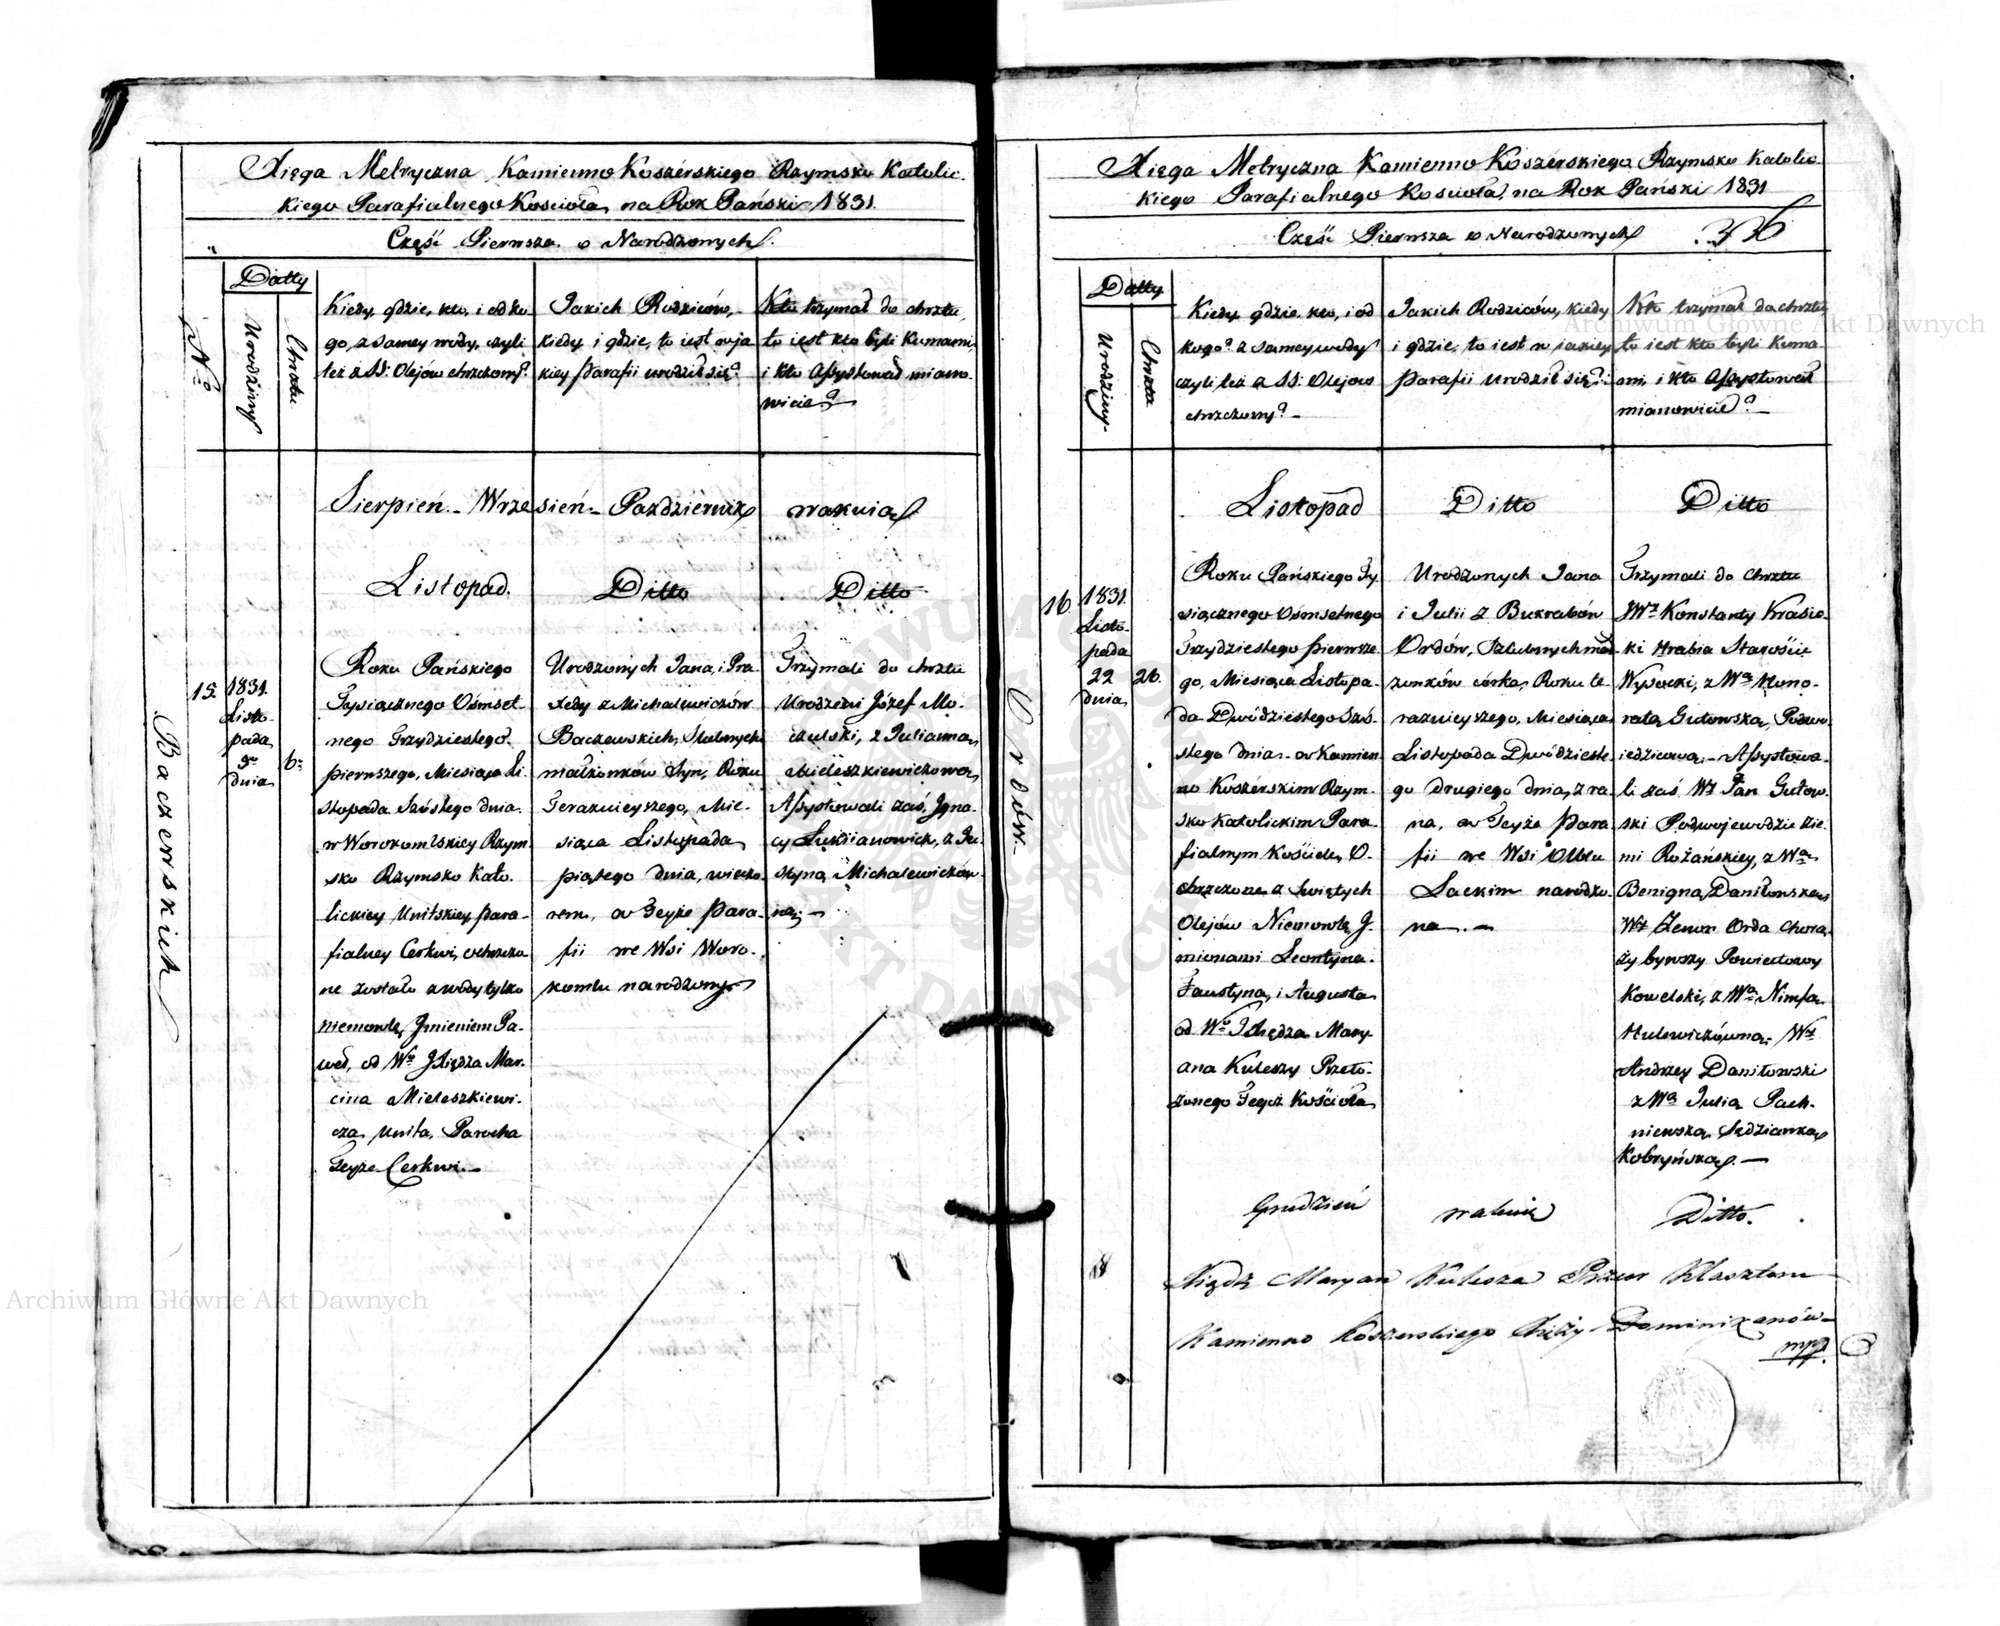 Xięga Metryczna Kamienno Koszérskiego Rzymsko Katolic-
kiego Parafialnego Kościoła na Rok Pański 1831.
Część Pierwsza o Narodzonych.
Datty
Nro
Urodziny
Chrztu
Kiedy, gdzie, kto, i od ko
go, z samey wody, czyli
też z SS: Olejów chrzczony?
Jakich Rodziców,
kiedy i gdzie, to iest w ja
kiey Parafii urodził się?
Kto trzymał do chrztu,
to iest kto byli Kumami,
i kto Assystował miano-
wicie?
Sierpień - Wrzesień - Październik wakuią.
Listopad.
Ditto
Ditto
Baczewskich
15.
1831.
Listo-
pada
5º
dnia
6º
Roku Pańskiego
Tysiącznego Ośmset-
nego Trzydziestego
pierwszego, Miesiąca Li-
stopada Szóstego dnia
w Worokomlskiey Rzym
sko Rzymsko Kato-
lickiey Unitskiey para-
fialney Cerkwi, ochrzczo
ne zostało z wody tylko
niemowle, Jmieniem Pa-
weł, od Wo JXiędza Mar-
cina Mieleszkiewi-
cza Unita, Parocha
Teyże Cerkwi.
Urodzonych Jana, i Pra-
xedy z Michalewiczów
Baczewskich, Slubnych
małżonków Syn, Roku
Teraznieyszego, Mie-
siąca Listopada
piątego dnia, wieczo-
rem, w Teyże Para-
fii we Wsi Woro-
komlu narodzony
Trzymali do chrztu
Urodzeni Józef Mo-
czulski, z Julianną
Mieleszkiewiczową,
Assystowali zaś, Igna-
cy Lukiianowicz, z Ju-
styną Michalewiczów-
ną
Xięga Metryczna Kamienno Koszérskiego Rzymsko Katolic-
kiego Parafialnego Kościoła, na Rok Pański 1831
Część Pierwsza o Narodzonych
Datty
Urodziny
Chrzta
Kiedy gdzie kto, i od
kogo? z samey wody
czyli też z SS: Olejow
chrzczony?
Jakich Rodziców, kiedy
i gdzie, to iest w iakiey
Parafii urodził się?
Kto trzymał do chrztu
to iest kto byli Kuma-
mi, i kto Assystował
mianowicie?
Listopad
Ditto
Ditto
Ordów.
16
1831.
Listo-
pada
22
dnia
26.
Roku Pańskiego Ty-
siącznego Ośmsetnego
Trzydziestego pierwsze-
go, Miesiąca Listopa-
da Dwódziestego Szós-
stego dnia w Kamien-
no Koszérskim Rzym-
sko Katolickim Para-
fialnym Kościele, O-
chrzczone z Swiętych
Olejów Niemowle J-
mionami Leontyna
Faustyna, i Augusta
od Wo JXiędza Mary-
ana Kuleszy Przeło-
żonego Tegoż Kościoła
Urodzonych Jana
i Julii z Bukrabów
Ordów, Szlubnych mał-
żonków córka, Roku te-
raznieyszego, Miesiąca
Listopada Dwódzieste-
go drugiego dnia, z ra-
na, w Teyże Para
fii we Wsi Olblu
Lackim narodzo-
na
Trzymali do chrztu
Wż Konstanty Krasic-
ki Hrabia Starościc
Wysocki, z Wą Hono-
ratą Gutowską,
Assystowa-
li zaś Wż Pan Gutow-
ski Podwojewodzic Zie-
mi Rożańskiey, z Wą
Benigną Daniłowską,
Wż Zenon Orda Chorą-
ży bywszy Powiatowy
Kowelski, z Wą Nimfą
Hulewiczówną, Wż
Andrzey Daniłowski
z Wą Julią Pach-
niewską Sędzianką
Kobryńską.
Grudzień wakuią Ditto.
Xiądz Maryan Kulesza Przeor Klasztoru
Kamienno Koszerskiego Xięży Dominikanów
mpp
Archiwum Główne Akt Dawnych
Archiwum Główne Akt Dawnych